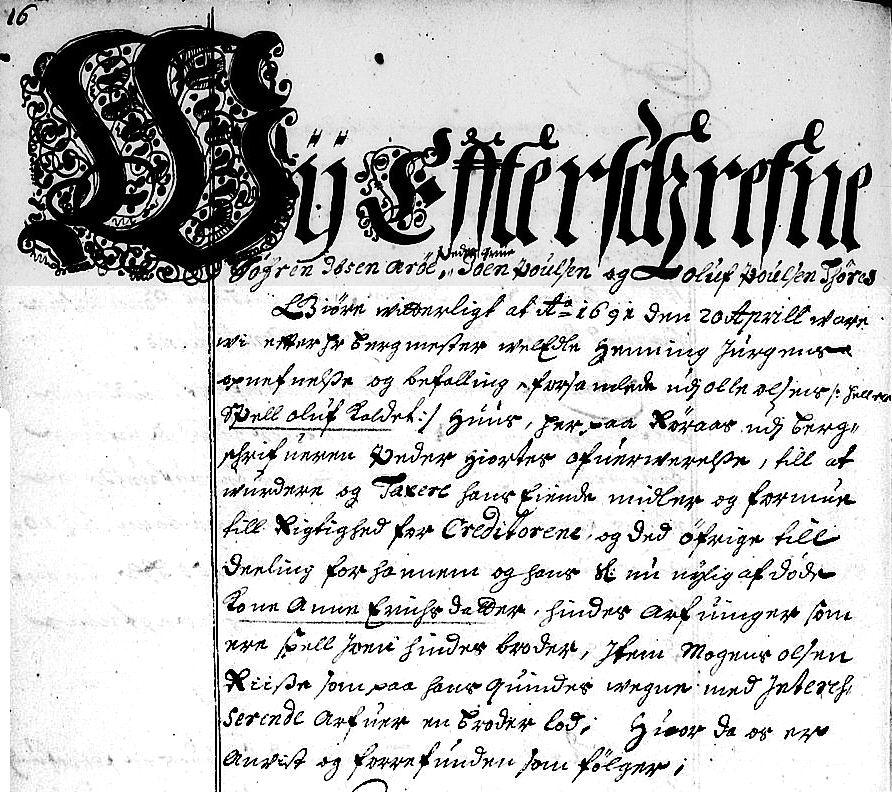 16
Wÿ Effterschrefne
Peder Gune
Søfren Ibsen Arøe, Joen Poulsen og Oluf Poulsen Thøres
Giøre witterligt at Ao 1691 den 20 Aprill ware
wi effter hr bergmester welEdle Henning Jürgens
opnefnelße og befalling forsamlede udj olle olsens /: heller
Spell oluf Kaldet :/ Huus, her paa Røraas udj berg-
schrifueren Peder Hiortes ofuerwerelße, till at
wurdere og Taxere hans Eiende midler og formue
till Rigtighed for Creditorene, og ded øfrige till
deeling for hannem og hans S: nu nylig af døde
Kone Anne Erichs datter, hindes Arfuinger som
ere spell Joen hindes broder, Item Mogens olsen
Riiße som paa hans quindes wegne med Interes-
serende Arfuer en broder lod; Huor da os er
Anvist og forrefunden som følger;